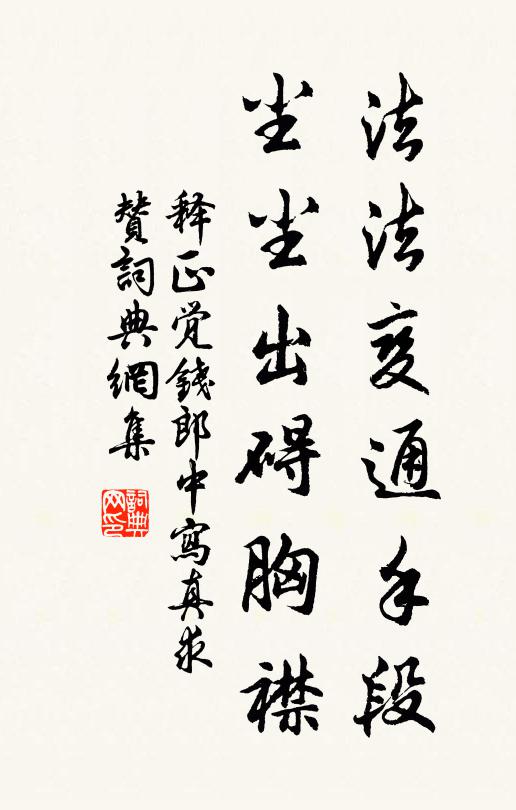 法法变通手段
尘尘出碍胸襟
释正觉錢郎中寫真求
贊詞典網集
詞典
网印